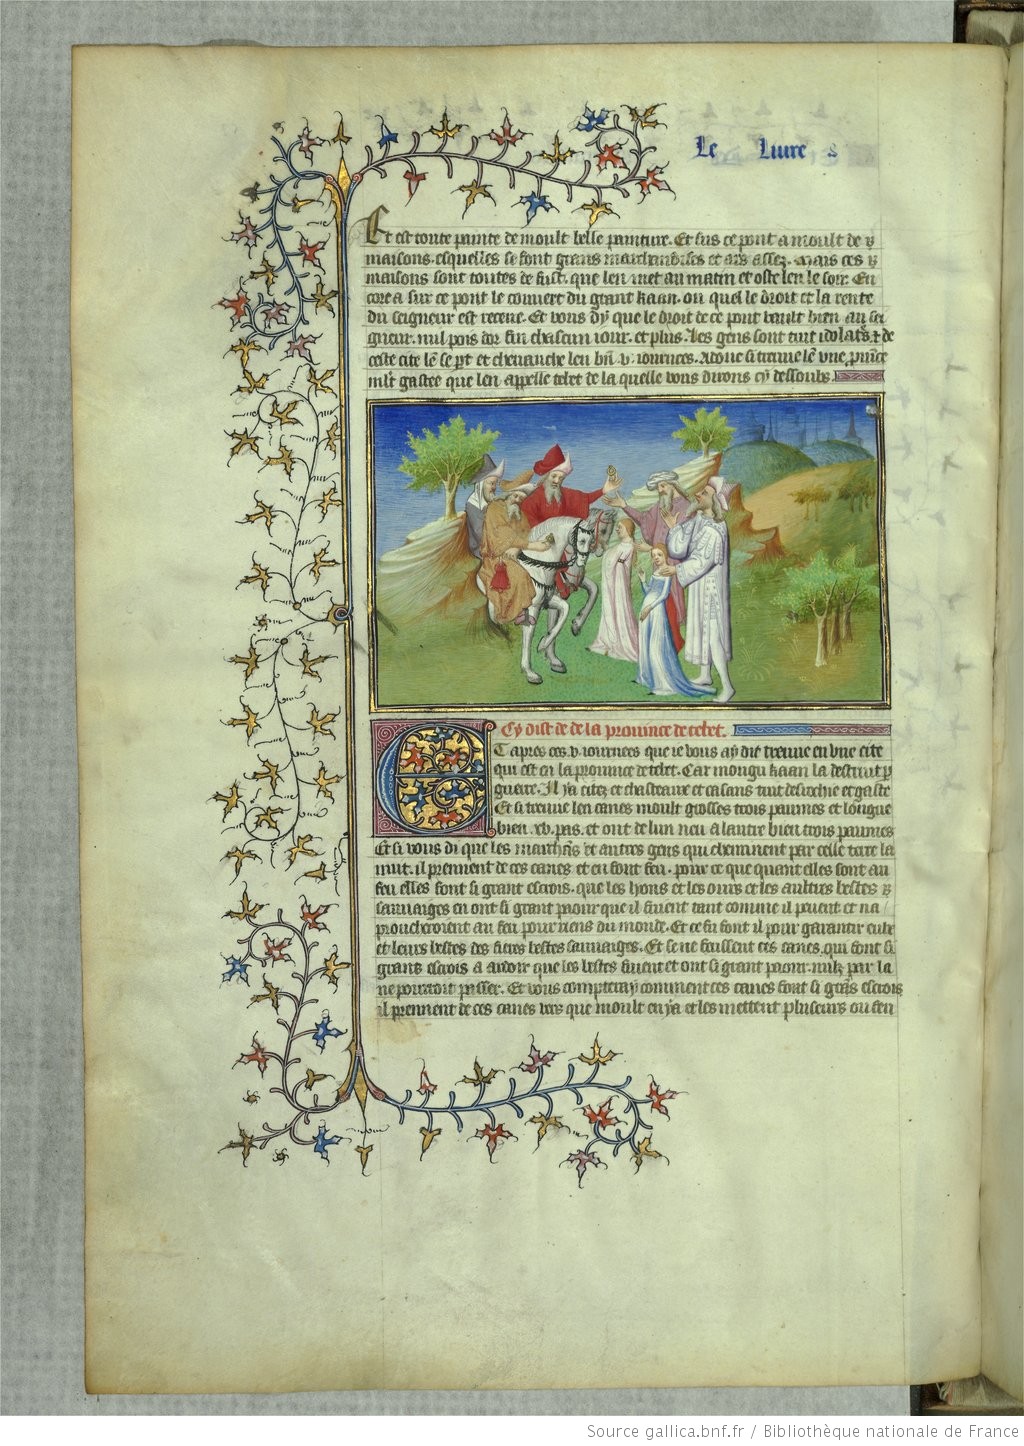 Le Liure
Et est toute painte de moult belle painture. Et sus ce pont a moult de
maisons. esquelles se font grans marchandises et ars assez. Mais ces
maisons sont toutes de fust. que len met au matin et oste len le soir. En
core a sur ce pont le couuert du grant kaan. ou quel le droit et la rente
du seigneur est receue. Et vous dy que le droit de ce pont vault bien au sei
gneur. mil pois dor fin chascun iour. et plus. Les gens sont tuit ydolatres. et de
ceste cite se part et cheuauche len bien .v. iournees. Adonc si treuue len vne prouince
mlt gastee que len appelle tebet de la quelle vous dirons cy dessoubz.
Cy dist de de la prouince de tebet.
Et apres ces .v. iournees que ie vous ay dit treuue en vne cite
qui est en la prouince de tebet. Car mongu kaan la destruit par
guerre. Il ya citez et chasteaux et casaus tuit desroche et gaste
Et si treuue len canes moult grosses trois paumes et longue
bien .xv. pas. et ont de lun neu a lautre bien trois paumes
Et si vous di que les marchans et autres gens qui cheminent par celle tere la
nuit. il prennent de ces canes et en font feu. pour ce que quant elles sont au
feu elles font si grant escrois. que les lyons et les ours et les aultres bestes
sauuaiges en ont si grant paour que il fuient tant comme il peuent et na
proucheroient au feu pour riens du monde. Et ce fu font il pour garantir eulx
et leurs bestes des fieres bestes sauuaiges. Et se ne feussent ces canes. qui font si
grans escrois a ardoir que les bestes fuient et ont si grant paour. nulz par la
ne pourroit passer. Et vous compteray comment ces canes font si grans escrois
il prennent de ces canes vers que moult en ya et les mettent plusieurs ou feu
Source gallica.bnf.fr / Bibliothèque nationale de France